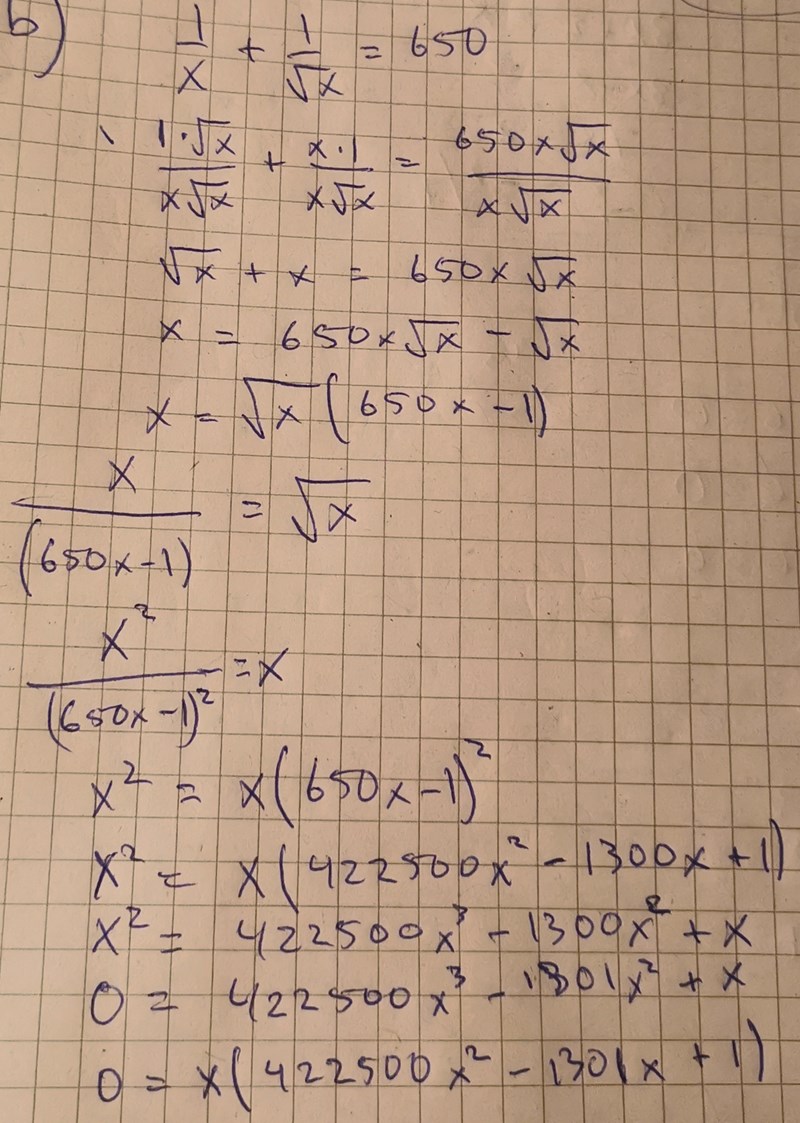 b) 1/x + 1/√x = 650
(1·√x)/(x√x) + (x·1)/(x√x) = (650x√x)/(x√x)
√x + x = 650x√x
x = 650x√x - √x
x = √x(650x - 1)
x/(650x-1) = √x
x²/(650x-1)² = x
x² = x(650x-1)²
x² = x(422500x² - 1300x + 1)
x² = 422500x³ - 1300x² + x
0 = 422500x³ - 1301x² + x
0 = x(422500x² - 1301x + 1)